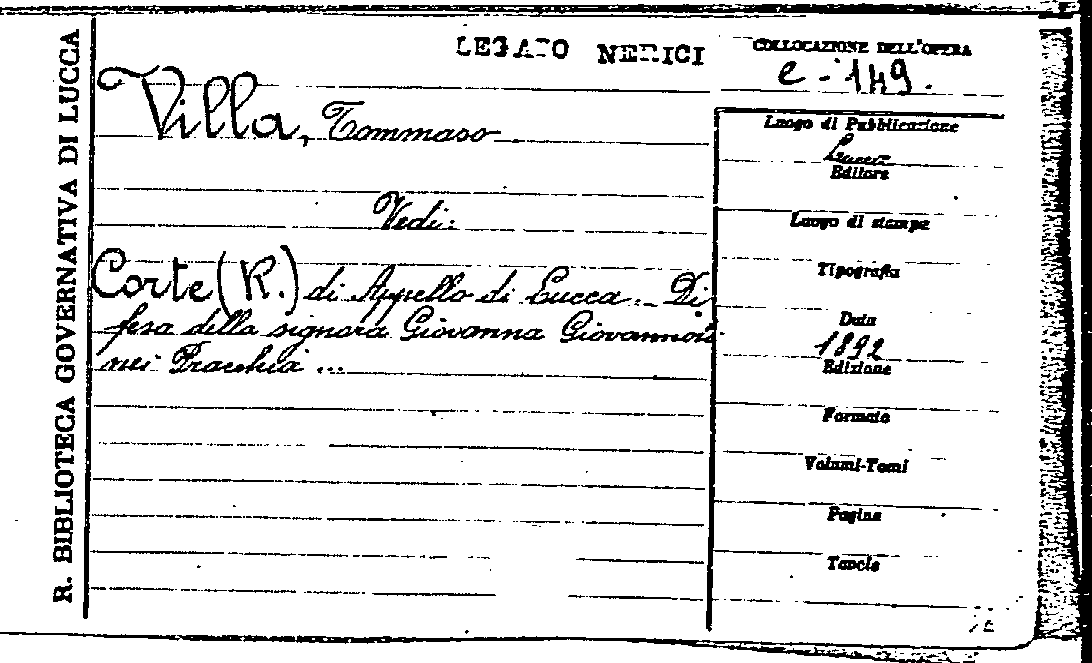 R. BIBLIOTECA GOVERNATIVA DI LUCCA
LEGATO NERICI
COLLOCAZIONE DELL'OPERA
e - 149.
Villa, Tommaso
Vedi:
Corte (R.) di Appello di Lucca. Di
fesa della signora Giovanna Giovannoni
nei Pracchia ...
Luogo di Pubblicazione
Lucca
Editore
Luogo di stampa
Tipografia
Data
1892
Edizione
Formato
Volumi-Tomi
Pagine
Tavole